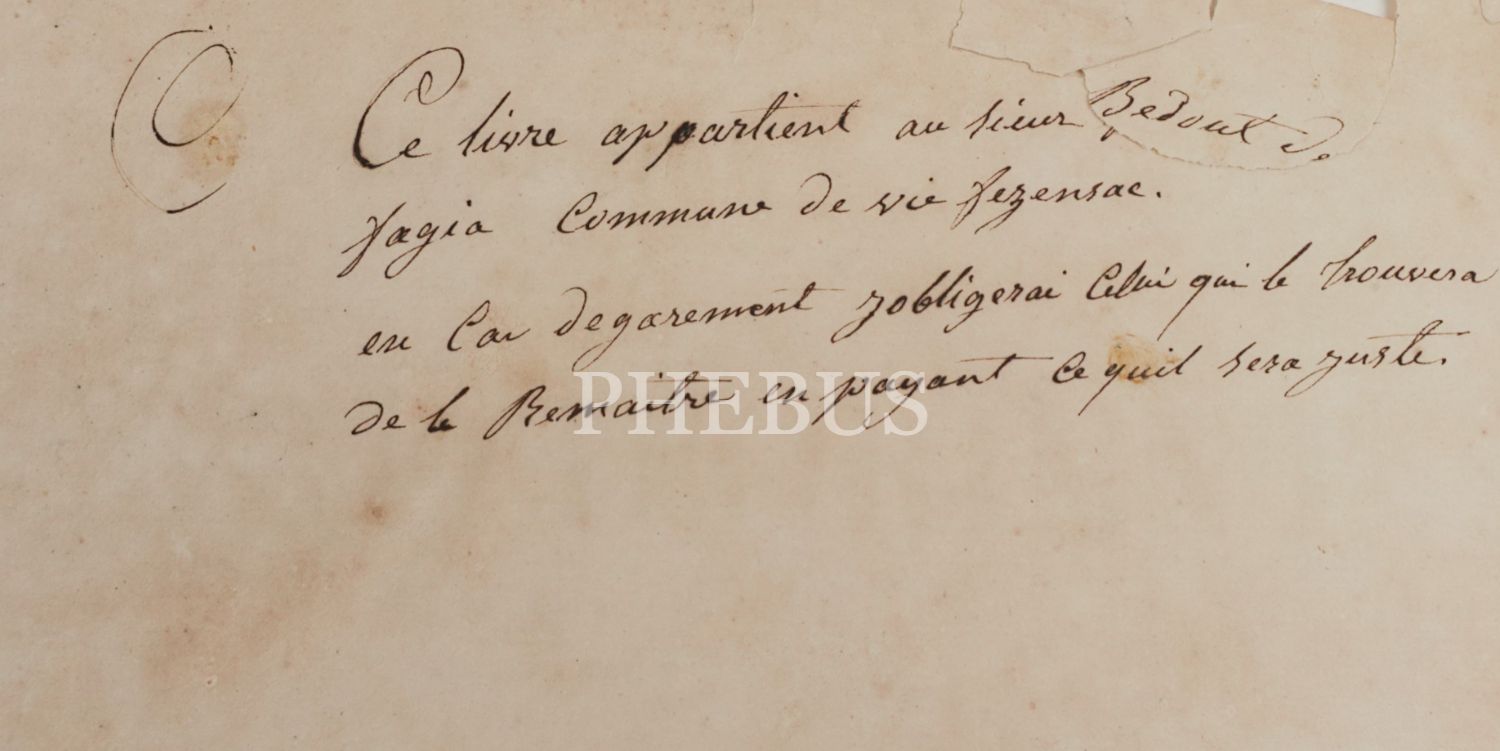 C Ce livre appartient au sieur Bedout de
fagia Commune de vic fezensac.
en Cas degarement jobligerai Celui qui le trouvera
de le Remaitre en payant ce quil sera juste.
PHEBUS